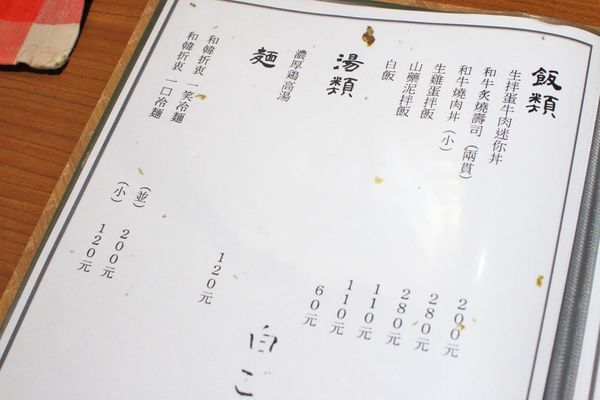 飯類
生拌蛋牛肉迷你丼 200元
和牛炙燒壽司（兩貫） 280元
和牛燒肉丼（小） 280元
生雞蛋拌飯 110元
山藥泥拌飯 110元
白飯 60元
湯類
濃厚鶏高湯 120元
麵
和韓折衷 一笑冷麵 （並） 200元
和韓折衷 一口冷麵 （小） 120元